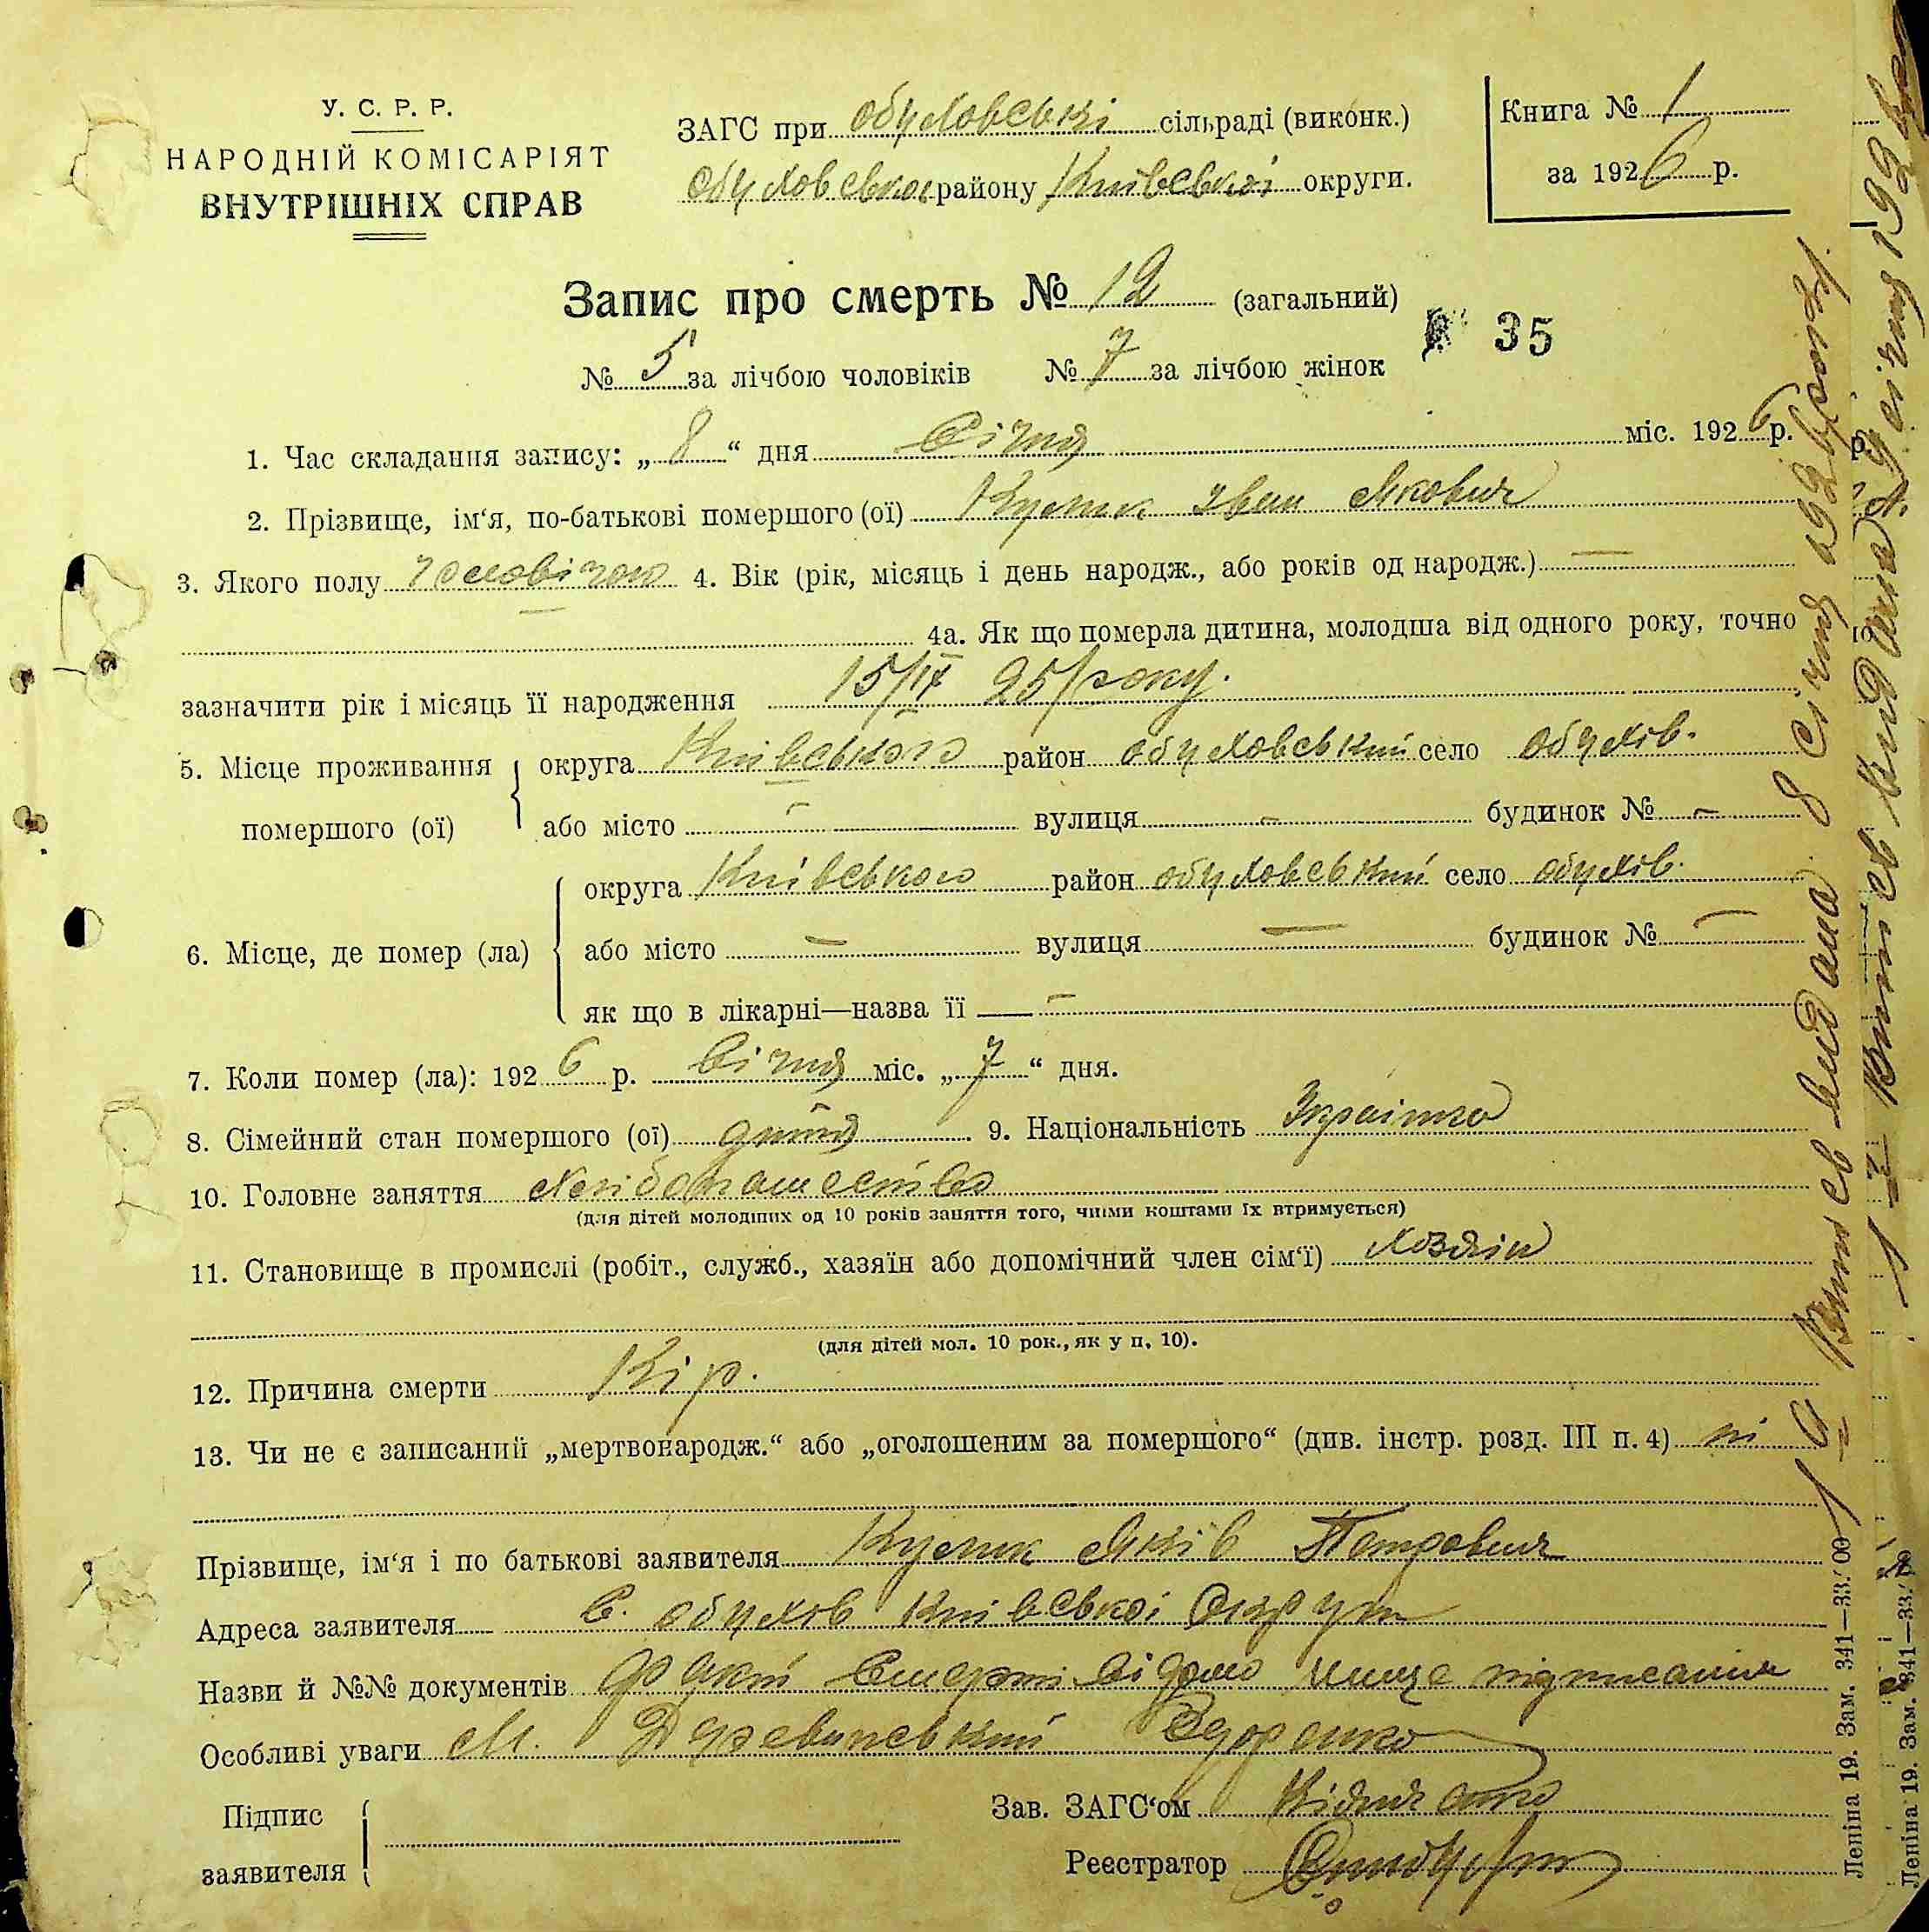 У. С. Р. Р.
НАРОДНІЙ КОМІСАРІЯТ
ВНУТРІШНІХ СПРАВ
ЗАГС при обуховські сільраді (виконк.)
обуховськог району Київської округи.
Книга № 1
за 1926 р.
Запис про смерть № 12 (загальний)
№ 5 за лічбою чоловіків № 7 за лічбою жінок
35
1. Час складання запису: „ 8 “ дня Січня міс. 1926 р.
2. Прізвище, ім‘я, по-батькові помершого (ої) Кулик Іван Якович
3. Якого полу чоловічого 4. Вік (рік, місяць і день народж., або років од народж.) —
4а. Як що померла дитина, молодша від одного року, точно
зазначити рік і місяць її народження 15/IX 25/року.
5. Місце проживання помершого (ої)
округа Київського район обуховський село обухів.
або місто — вулиця — будинок № —
6. Місце, де помер (ла)
округа Київського район обуховський село обухів.
або місто — вулиця — будинок № —
як що в лікарні—назва її —
7. Коли помер (ла): 1926 р. Січня міс. „ 7 “ дня.
8. Сімейний стан помершого (ої) дитя 9. Національність Україн
10. Головне заняття Хлібопашество
(для дітей молодших од 10 років заняття того, чиїми коштами їх втримується)
11. Становище в промислі (робіт., служб., хазяїн або допомічний член сім‘ї) Хозяін
(для дітей мол. 10 рок., як у п. 10).
12. Причина смерти Кір.
13. Чи не є записаний „мертвонародж.“ або „оголошеним за помершого“ (див. інстр. розд. III п. 4) ні
Прізвище, ім‘я і по батькові заявителя Кулик Яків Петрович
Адреса заявителя С. обухів Київської Округи
Назви й №№ документів Факт Смерті відомо нище підписаним
Особливі уваги М. Федоренко
Підпис заявителя
Зав. ЗАГС‘ом
Реєстратор
Выпись видана 8 Січня 1926 року.
Леніна 19. Зам. 341—33.
Выпись видана Січня 192
Леніна 19. Зам. 341—33.